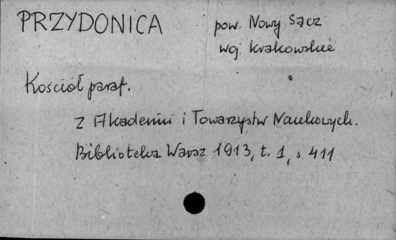 PRZYDONICA
pow. Nowy Sącz
woj. krakowskie
Kościół paraf.
Z Akademii i Towarzystw Naukowych.
Biblioteka Warsz 1913, t. 1, s 411